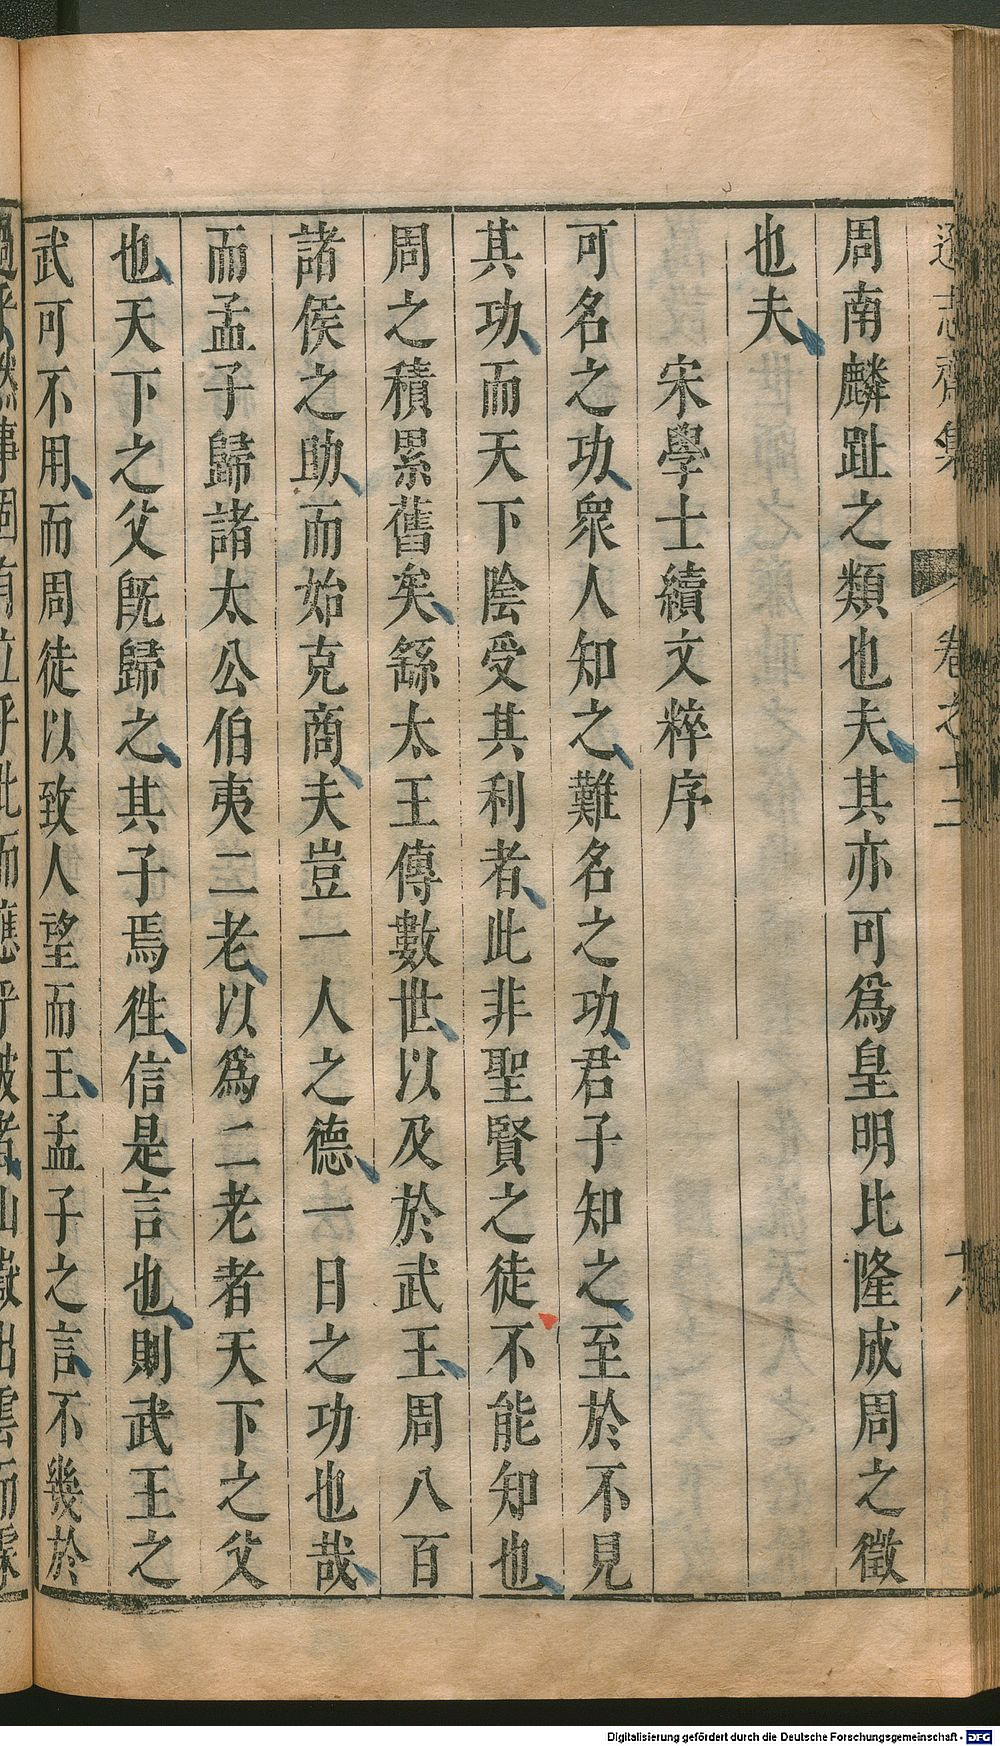 遜志齋集 卷之十二 十八
周南麟趾之類也夫其亦可爲皇明比隆成周之徵
也夫
宋學士續文粹序
可名之功衆人知之難名之功君子知之至於不見
其功而天下陰受其利者此非聖賢之徒不能知也
周之積累舊矣繇太王傳數世以及於武王周八百
諸侯之助而始克商夫豈一人之德一日之功也哉
而孟子歸諸太公伯夷二老以爲二老者天下之父
也天下之父旣歸之其子焉徃信是言也則武王之
武可不用而周徒以致人望而王孟子之言不幾於
過乎然事固有立乎此而應乎彼者山嶽出雲而
Digitalisierung gefördert durch die Deutsche Forschungsgemeinschaft - DFG